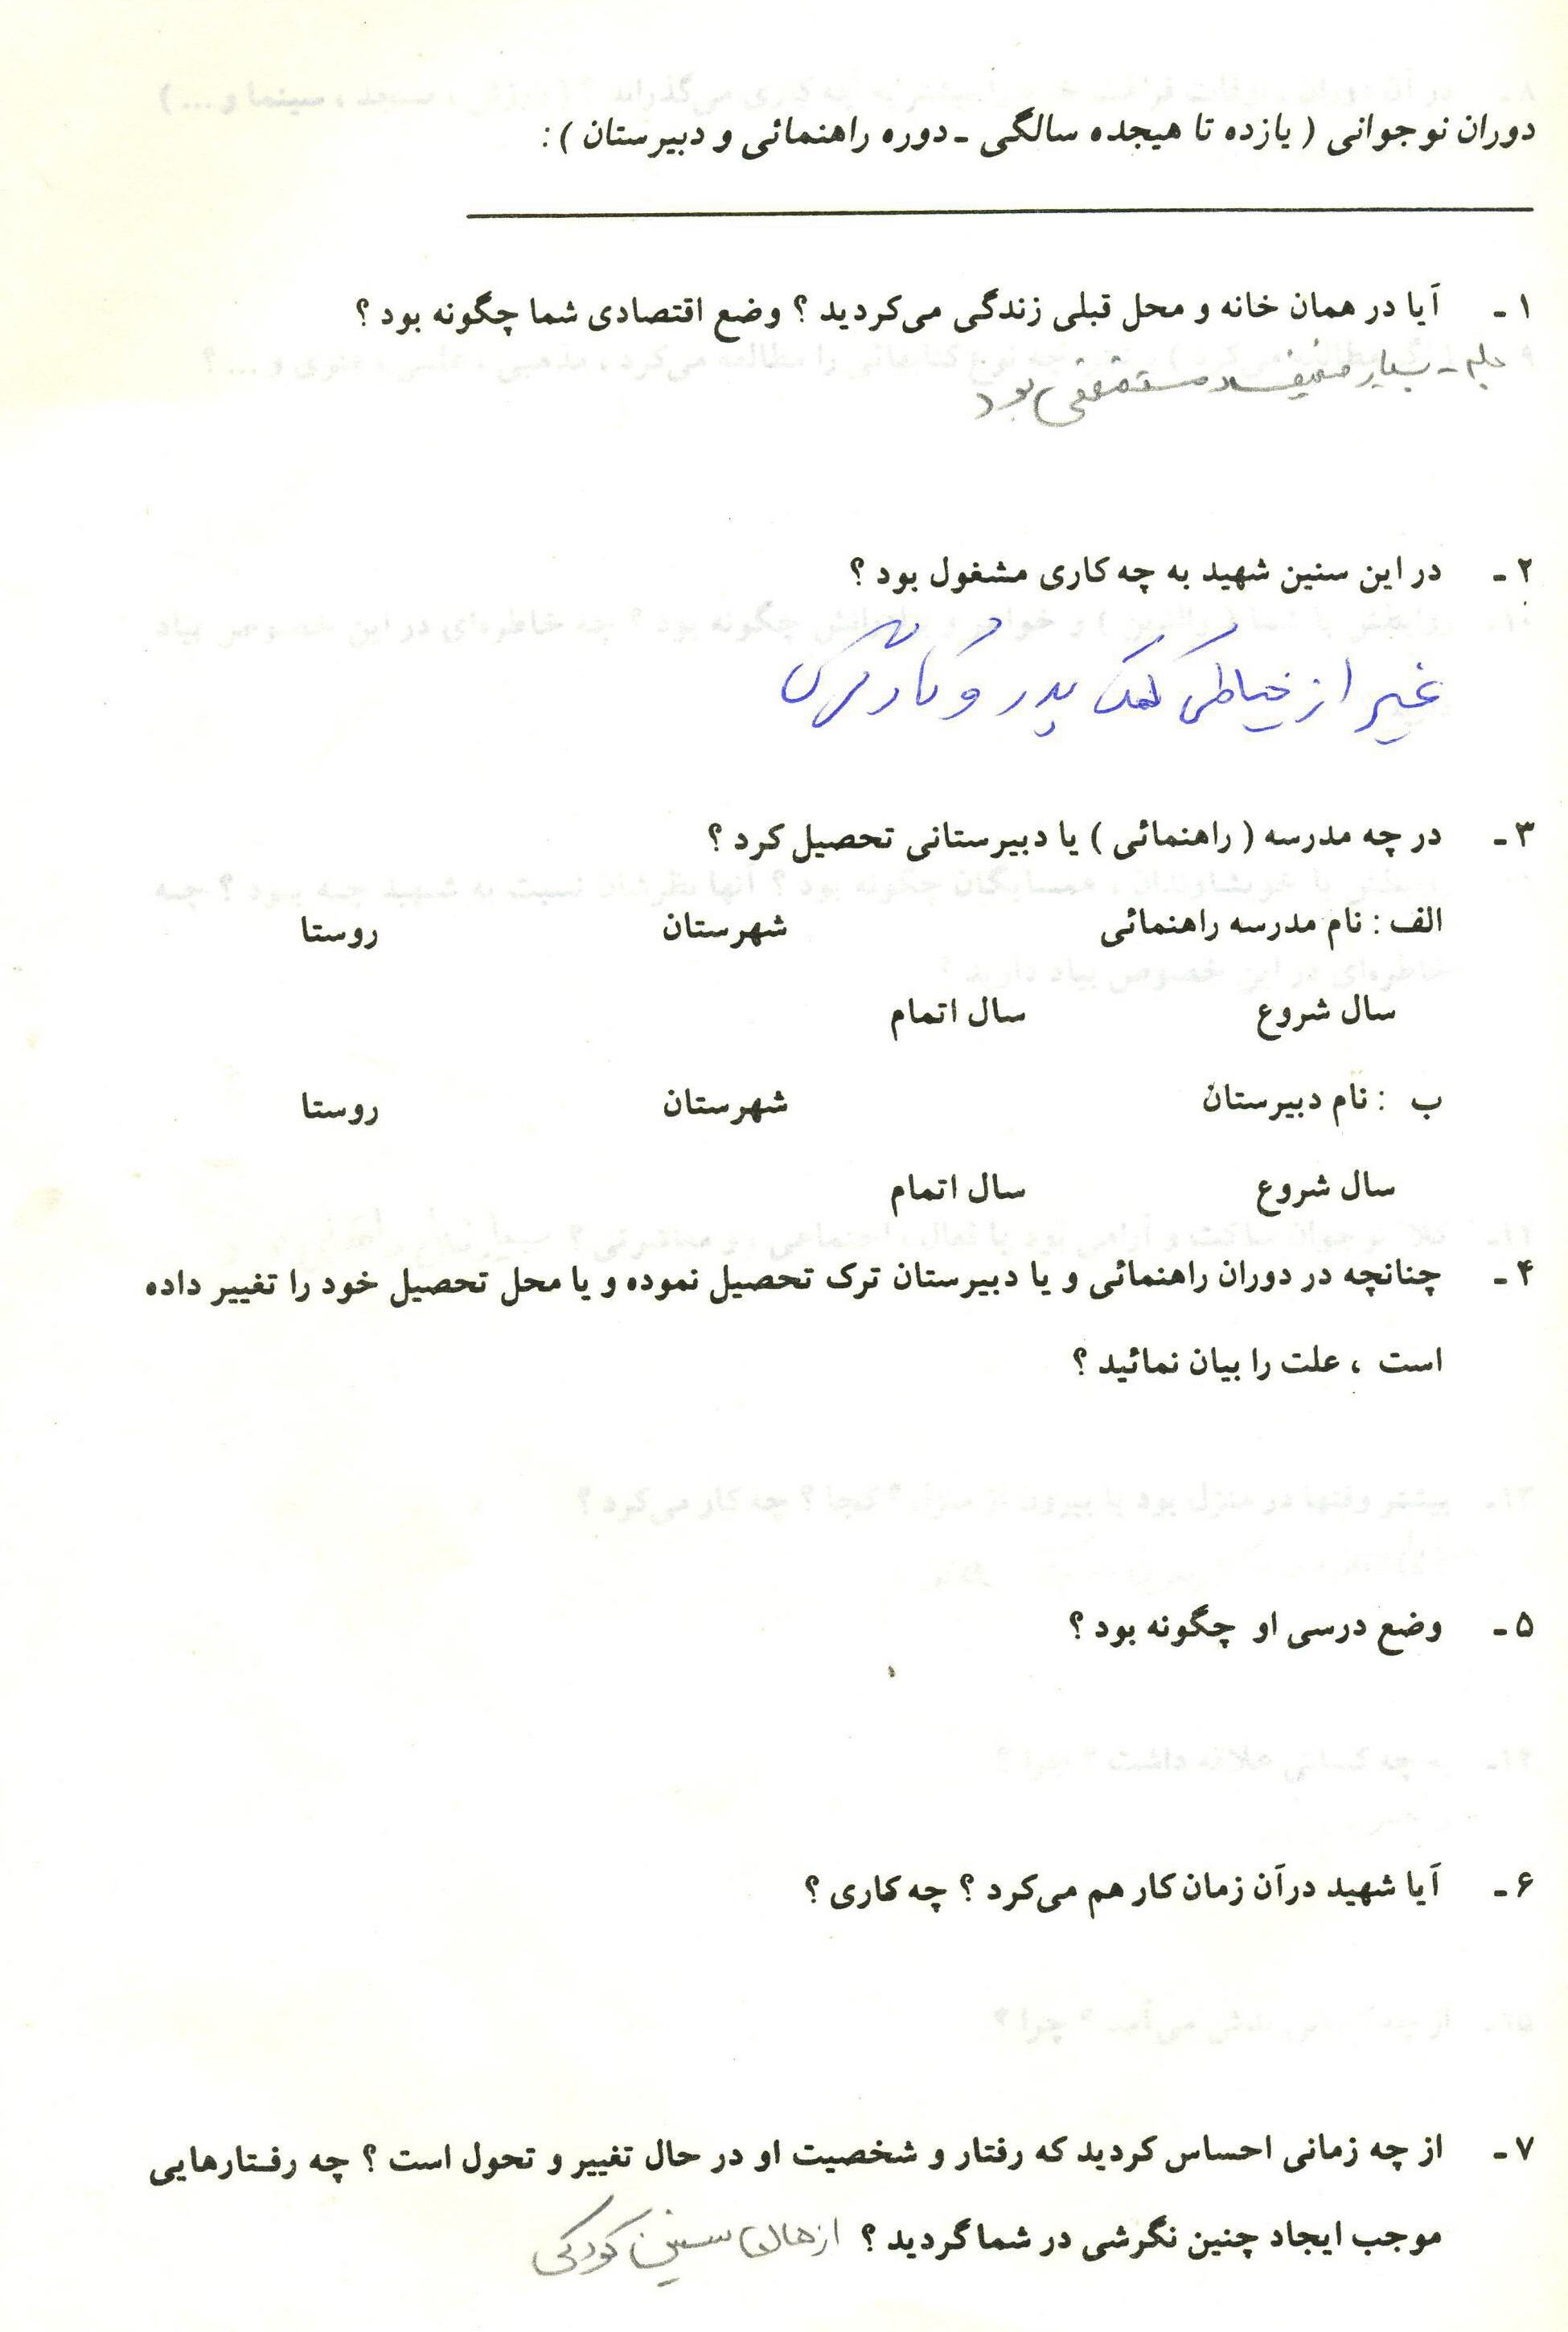 دوران نوجوانی ( یازده تا هیجده سالگی ـ دوره راهنمائی و دبیرستان ) :
۱ ـ آیا در همان خانه و محل قبلی زندگی می‌کردید ؟ وضع اقتصادی شما چگونه بود ؟
بسیار ضعیف بود
۲ ـ در این سنین شهید به چه کاری مشغول بود ؟
غیر از خیاطی کمک پدر و مادرش
۳ ـ در چه مدرسه ( راهنمائی ) یا دبیرستانی تحصیل کرد ؟
الف : نام مدرسه راهنمائی شهرستان روستا
سال شروع سال اتمام
ب : نام دبیرستان شهرستان روستا
سال شروع سال اتمام
۴ ـ چنانچه در دوران راهنمائی و یا دبیرستان ترک تحصیل نموده و یا محل تحصیل خود را تغییر داده
است ، علت را بیان نمائید ؟
۵ ـ وضع درسی او چگونه بود ؟
۶ ـ آیا شهید درآن زمان کار هم می‌کرد ؟ چه کاری ؟
۷ ـ از چه زمانی احساس کردید که رفتار و شخصیت او در حال تغییر و تحول است ؟ چه رفـتارهایی
موجب ایجاد چنین نگرشی در شما گردید ؟ از همان سنین کودکی